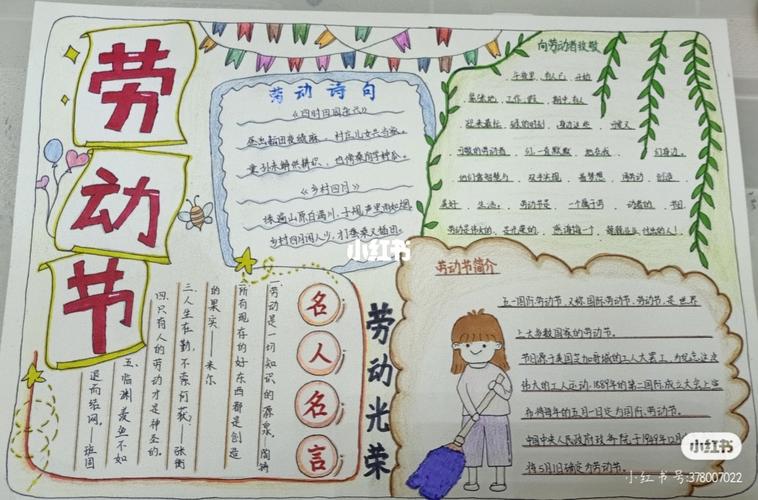 劳动节
劳动诗句
《四时田园杂兴》
昼出耘田夜绩麻,村庄儿女共当家。
童孙未解供耕织,也傍桑阴学种瓜。
《乡村四月》
绿遍山原白满川,子规声里雨如烟。
乡村四月闲人少,才了蚕桑又插田。
向劳动者致敬
美好 生活。劳动节是 一个属于劳 动者的 节日
小红书
一劳动是一切知识的源泉。陶铸
二所有现存的好东西都是创造
的果实——米尔
三人生在勤,不索何获?——张衡
四.只有人的劳动才是神圣的。
五.临渊羡鱼不如
退而结网。——班固
名人名言
劳动光荣
劳动节简介
五一国际劳动节,又称国际劳动节、劳动节,是世界
上大多数国家的劳动节。
节日源于美国芝加哥城的工人大罢工,为纪念这次
伟大的工人运动,1889年的第二国际成立大会上宣
布将每年的五月一日定为国际劳动节。
中国中央人民政府政务院于1949年12月
将5月1日确定为劳动节。
小红书
小红书号:378007022